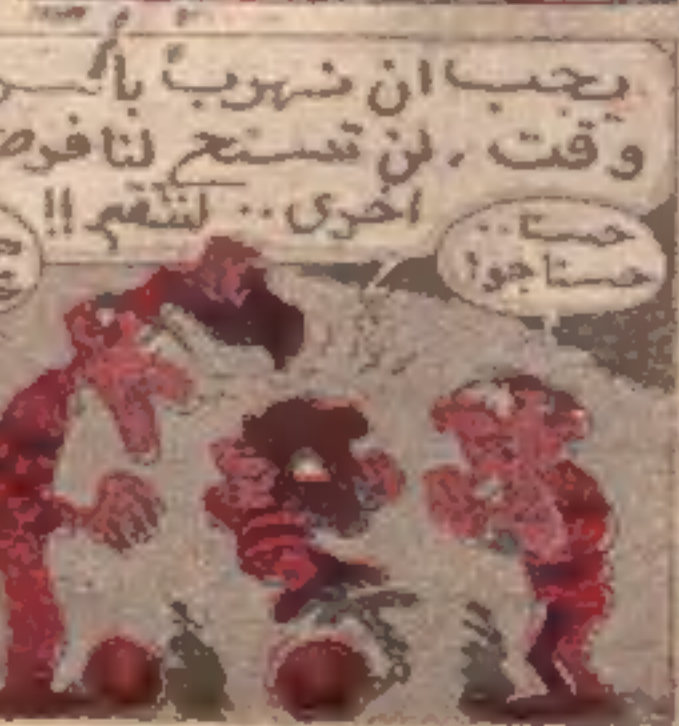 يجب ان نهرب بأسر
وقت . لن تسنح لنا فرص
اخرى .. لننتقم !!
حسنا ..
حسنا جو !